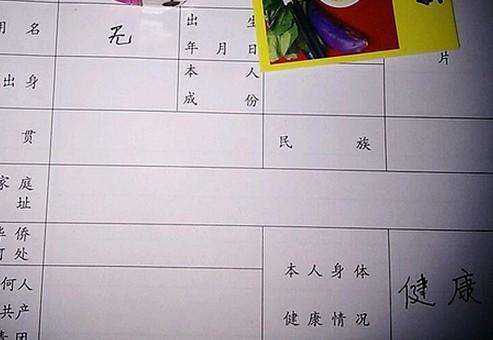 用名 无 出生
年月日
出身 本人
成份
片
贯 民族
家庭
址
华侨
何处
何人 本人身体 健康
共产 健康情况
青团